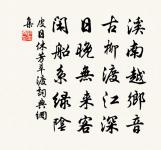 溪南越鄉音
古柳渡江深
日晚無來客
閑船系綠陰
皮日休芳草渡詞典網
集